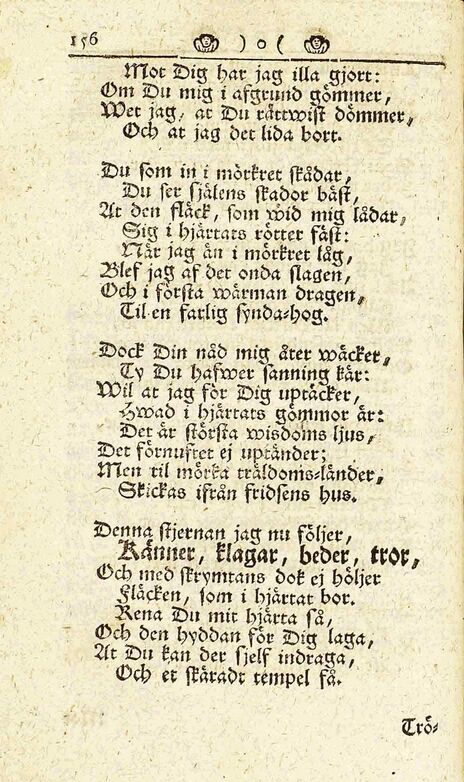 156 ) o (
Mot Dig har jag illa gjort:
Om Du mig i afgrund gömmer,
Wet jag, at Du rättwist dömmer,
Och at jag det lida bort.
Du som in i mörkret skådar,
Du ser själens skador bäst,
At den fläck, som wid mig lådar,
Sig i hjärtats rötter fäst:
När jag än i mörkret låg,
Blef jag af det onda slagen,
Och i första wärman dragen,
Til en farlig synda-hog.
Dock Din nåd mig åter wäcker,
Ty Du hafwer sanning kär:
Wil at jag för Dig uptäcker,
Hwad i hjärtats gömmor är:
Det är största wisdoms ljus,
Det förnuftet ej uptänder;
Men til mörka träldoms-länder,
Skickas ifrån fridsens hus.
Denna stjernan jag nu följer,
Känner, klagar, beder, tror,
Och med skrymtans dok ej höljer
Fläcken, som i hjärtat bor.
Rena Du mit hjärta så,
Och den hyddan för Dig laga,
At Du kan der sjelf indraga,
Och et skäradt tempel få.
Trö-